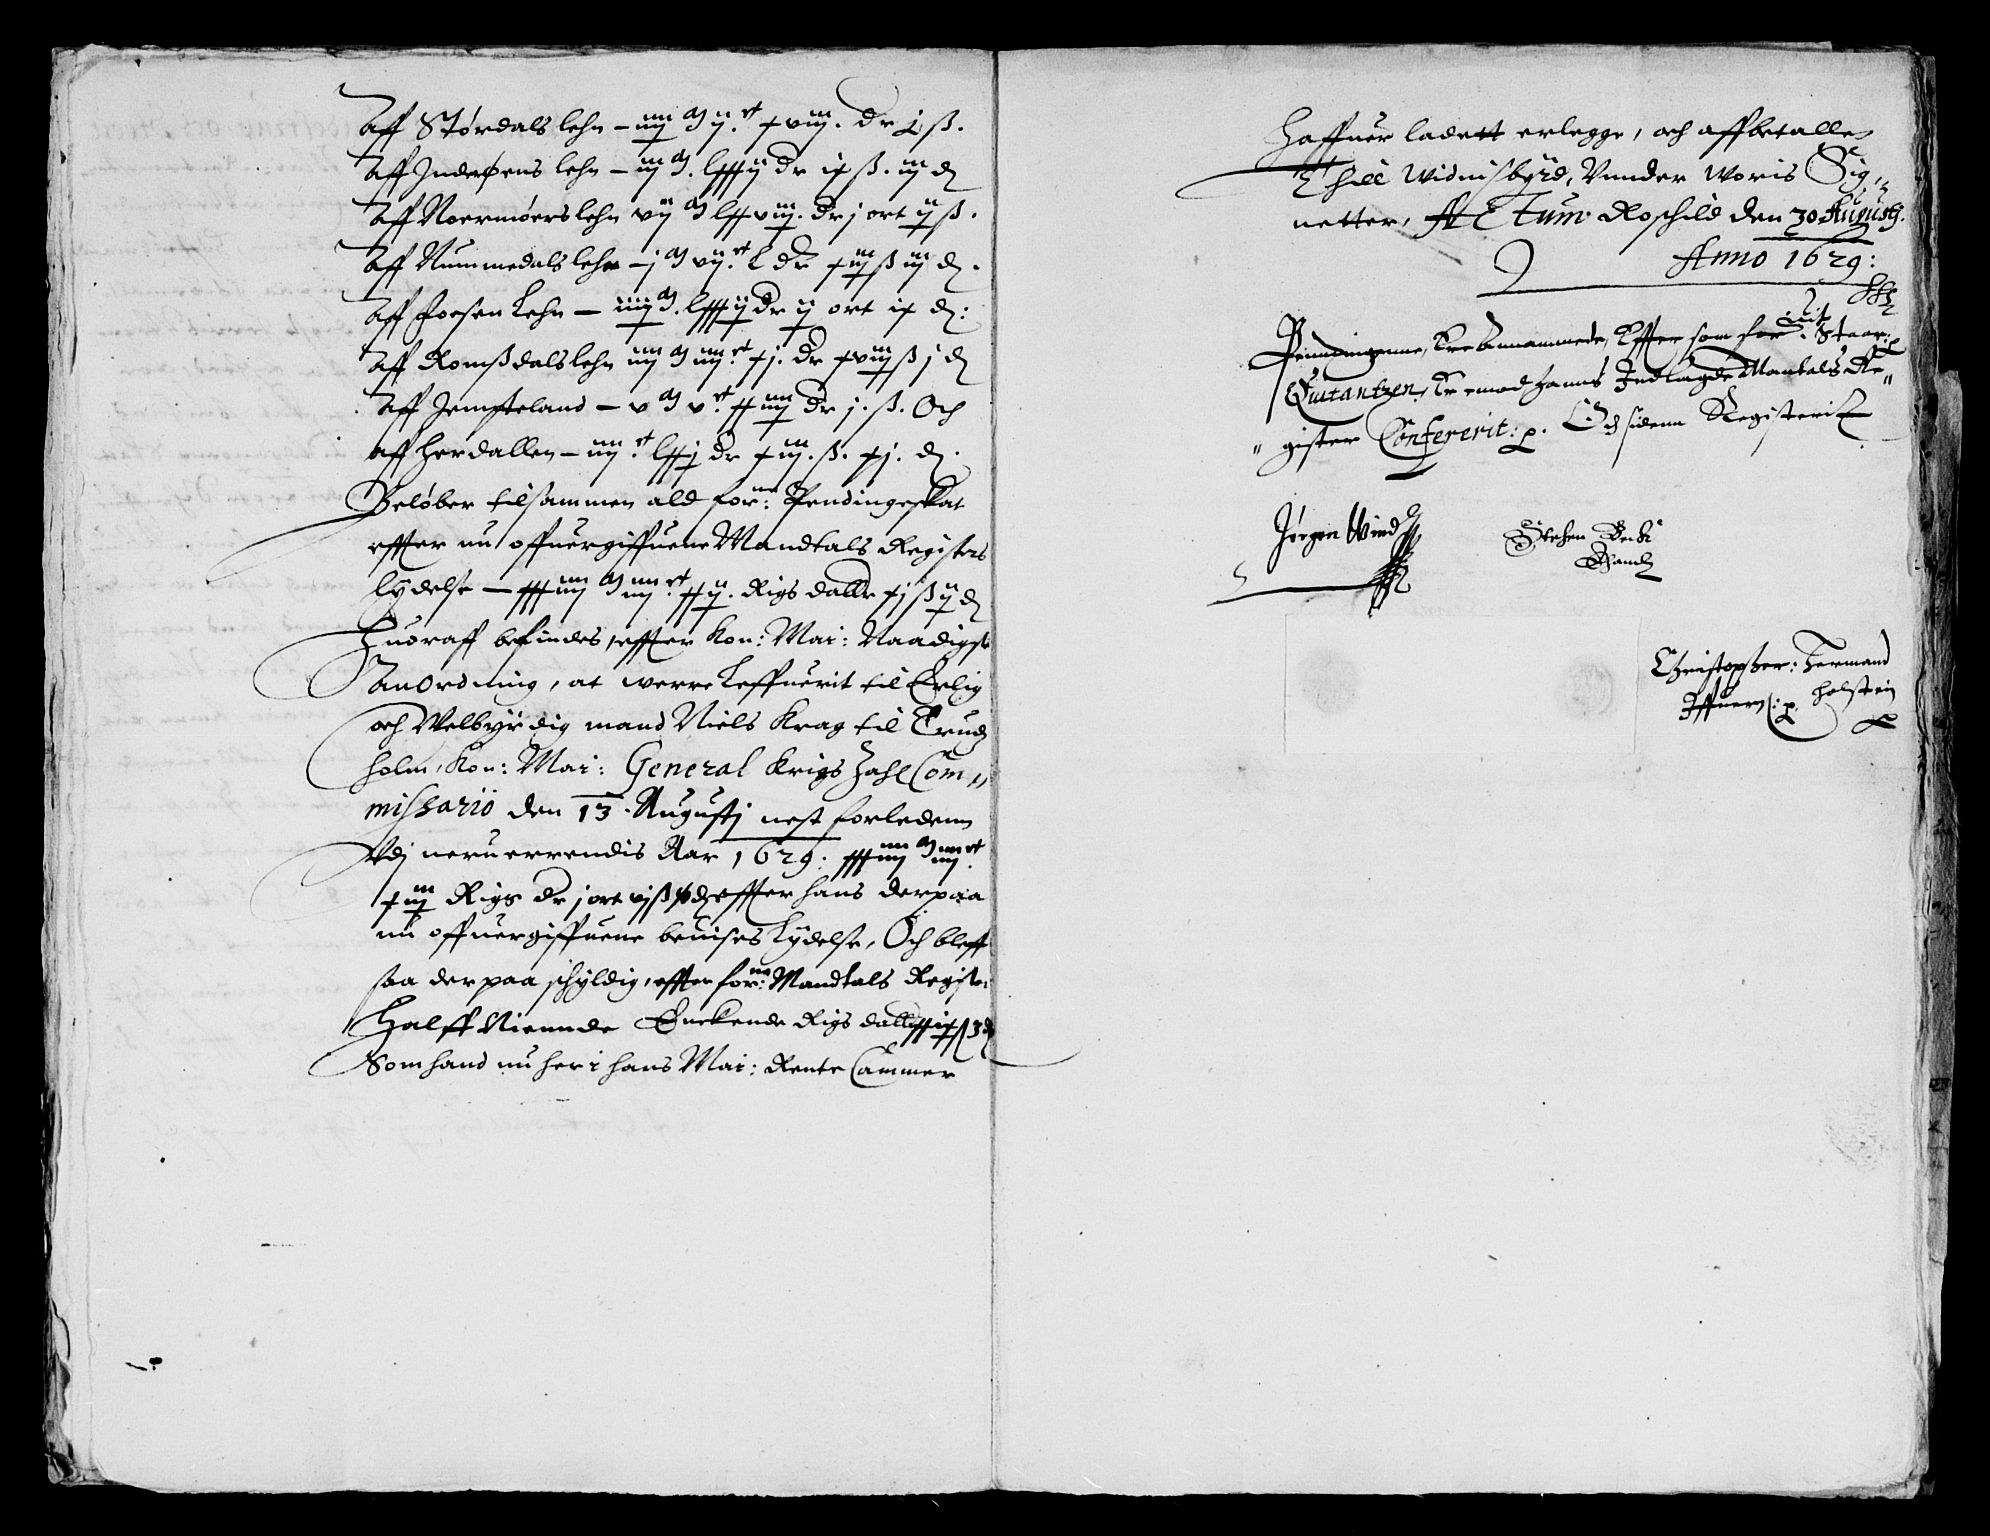 Aff Størdals lehn – iiij M ij. ct xviij. dr j ß.
Aff Inderøens lehn – iiij M. lxxxij dr ix ß. iij d
Aff Noermøers lehn vij M lxxviij. dr j ort ij ß.
Aff Nummedals lehn – j M vij. ct l dr xiij ß iij d.
Aff Foesen Lehn – iiij M. lxxxij dr ij ort ix d:
Aff Romßdals lehn iiij M iiij. ct xj. dr xviij ß j d
Aff Jempteland – v M v. ct xxiiij dr j. ß. Och
aff Herdallen – iiij. ct lxxj dr xiij. ß. xj. d.
Beløber tilsammen ald for:ne Pendingeskat
effter nu offuergiffuene Mandtals Registers
lydelse – xxxiiij M iiij. ct xxij. Rigs dallr xj ß ij d
Huoraff befindes, effter Kon: Mai: Naadigste
Anordning, at werre Leffuerit til Erlig
och Velbyrdig mand Niels Krag til
holm, Kon: Mai: General Krigs Zahl Com„
missario den 13. Augustj nest forleden
Vdj neruerrendis Aar 1629: xxxiiij M iiij ct
xiij Rigs dr j ort vj ß effter hans derpaa
nu offuergiffuene beuises Lydelse, Och bleff
saa derpaa schyldig, effter for:ne Mandtals Register
Halff Niennde Enckende Rigs daller
Som hand nu her i hans Mai: Rente Cammer
Haffuer ladett erlegge, och affbetalle
Thill Widnisbyrd, Vnnder Woris Sig„
netter, Actum Roschild den 30 Augustj.
Anno 1629:
Penndingenne, Ere Annammede, Effter som for Staar: p
Quitantzen, Er emod hanns Indlagde Mantals Re„
„gister Confererit: p. Och sidenn Registerit
Jørgen Wind
Stehen Beck
Christopher: Hermand
Iffuers: p. Holstein